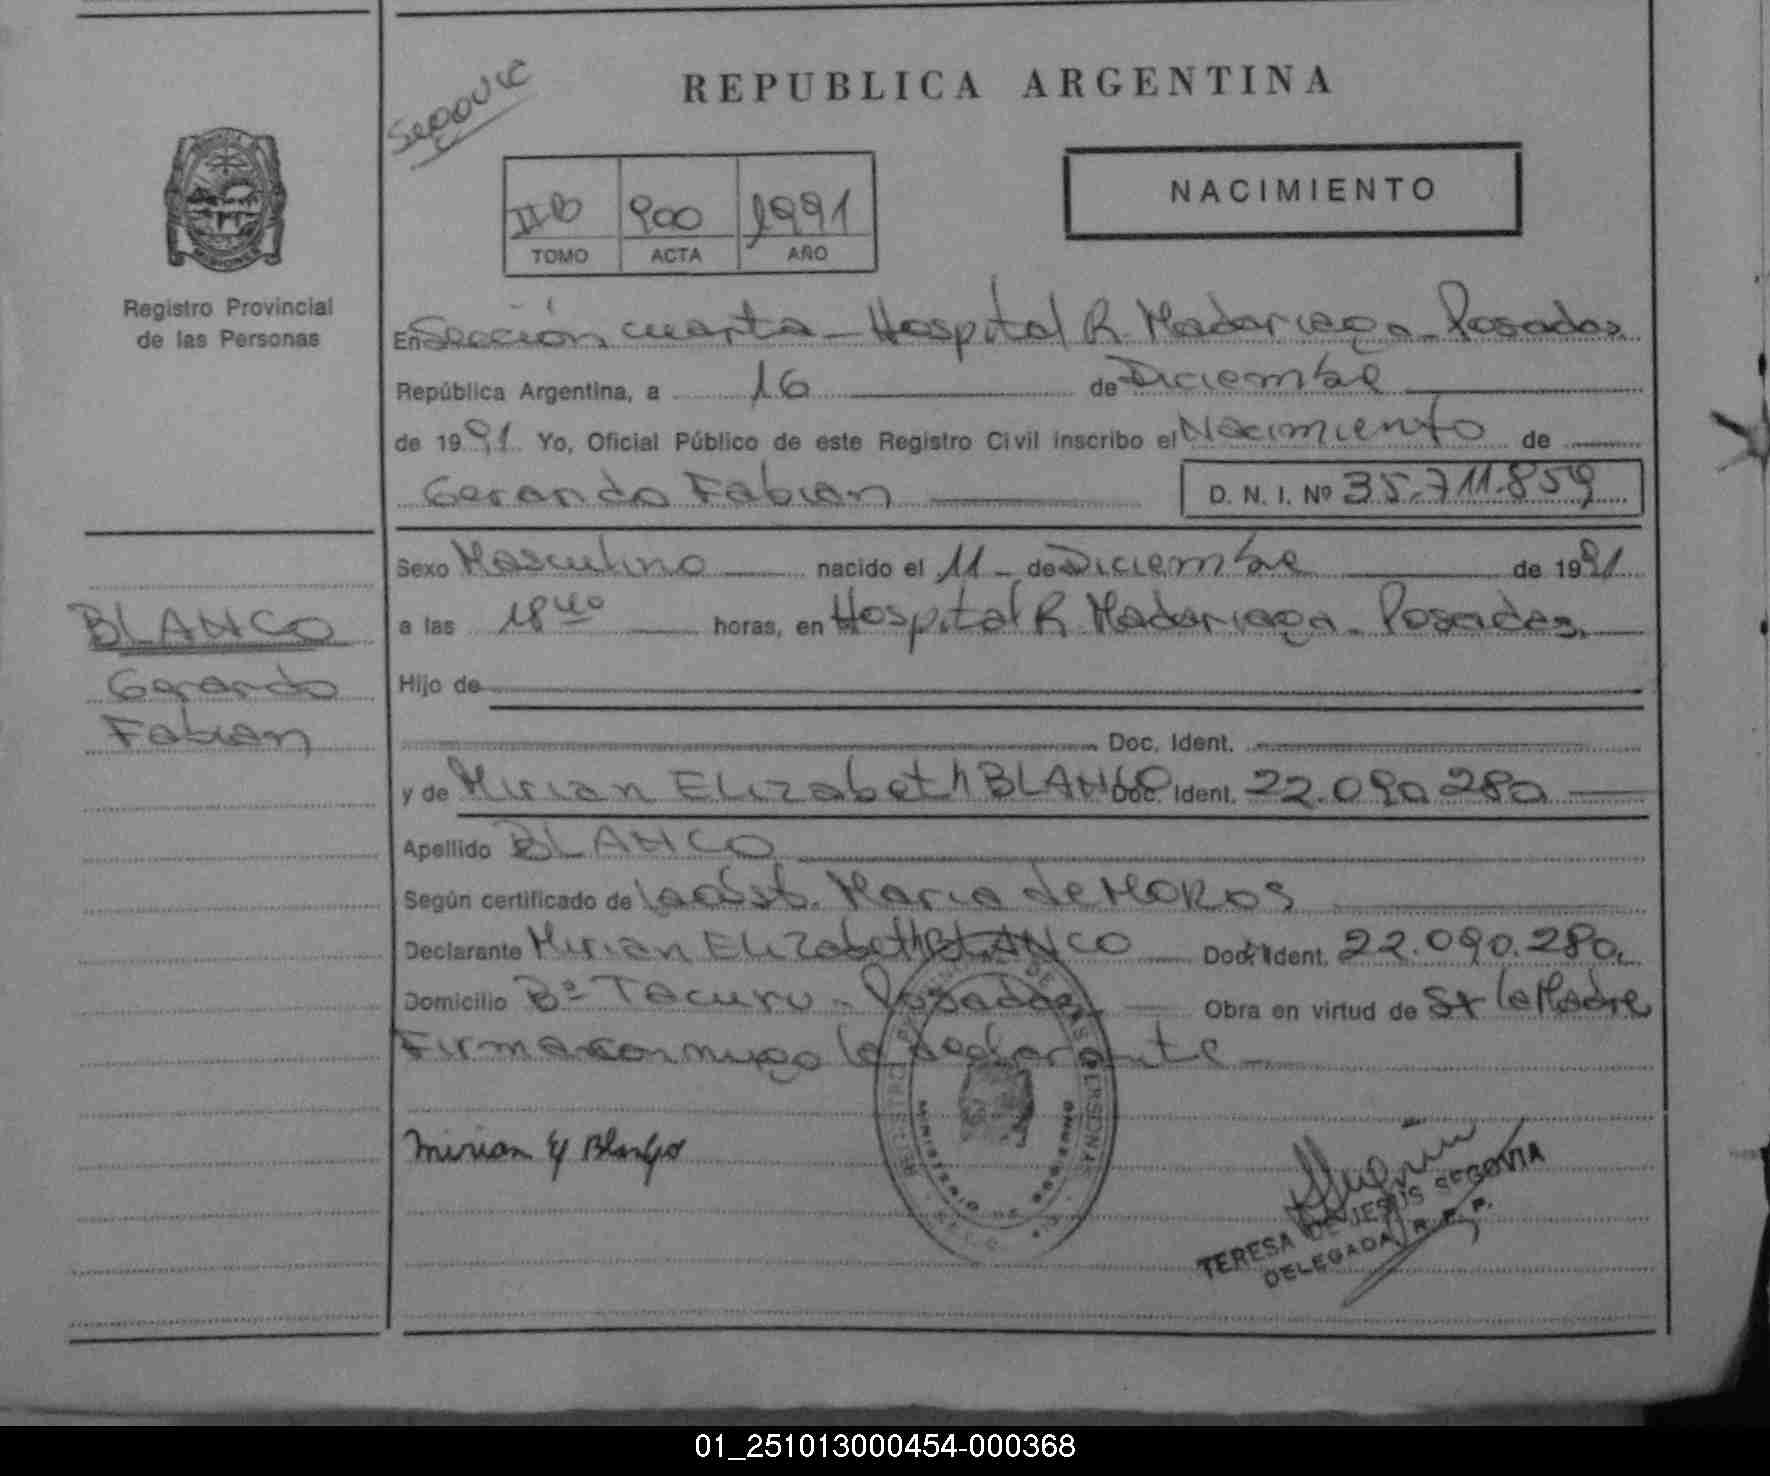 REPUBLICA ARGENTINA
NACIMIENTO
IIB 900 1991
TOMO ACTA AÑO
MISIONES
Registro Provincial
de las Personas
En Sección cuarta - Hospital R. Madariaga - Posadas.
República Argentina, a 16 de Diciembre
de 1991. Yo, Oficial Público de este Registro Civil inscribo el Nacimiento de
Gerardo Fabian D. N. I. Nº 35.711.859
Sexo Masculino nacido el 11 - de Diciembre de 1991
a las 18 40 horas, en Hospital R. Madariaga - Posadas.
BLANCO
Gerardo
Fabian
Hijo de
Doc. Ident.
y de Mirian Elizabeth BLANCO Doc. Ident. 22.090.280
Apellido BLANCO
Según certificado de la obst. Maria de MOROS
Declarante Mirian Elizabeth BLANCO Doc. Ident. 22.090.280.
Domicilio Bº Tacuru - Posadas Obra en virtud de ser la Madre
Firma conmigo la declarante
Mirian E Blanco
TERESA DE JESUS SEGOVIA
DELEGADA R. P. P.
01_251013000454-000368